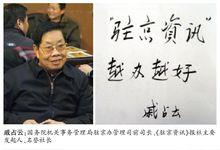 “驻京资讯”
越办越好
戚占云
戚占云：国务院机关事务管理局驻京办管理司前司长、《驻京资讯》报社主要
发起人、名誉社长